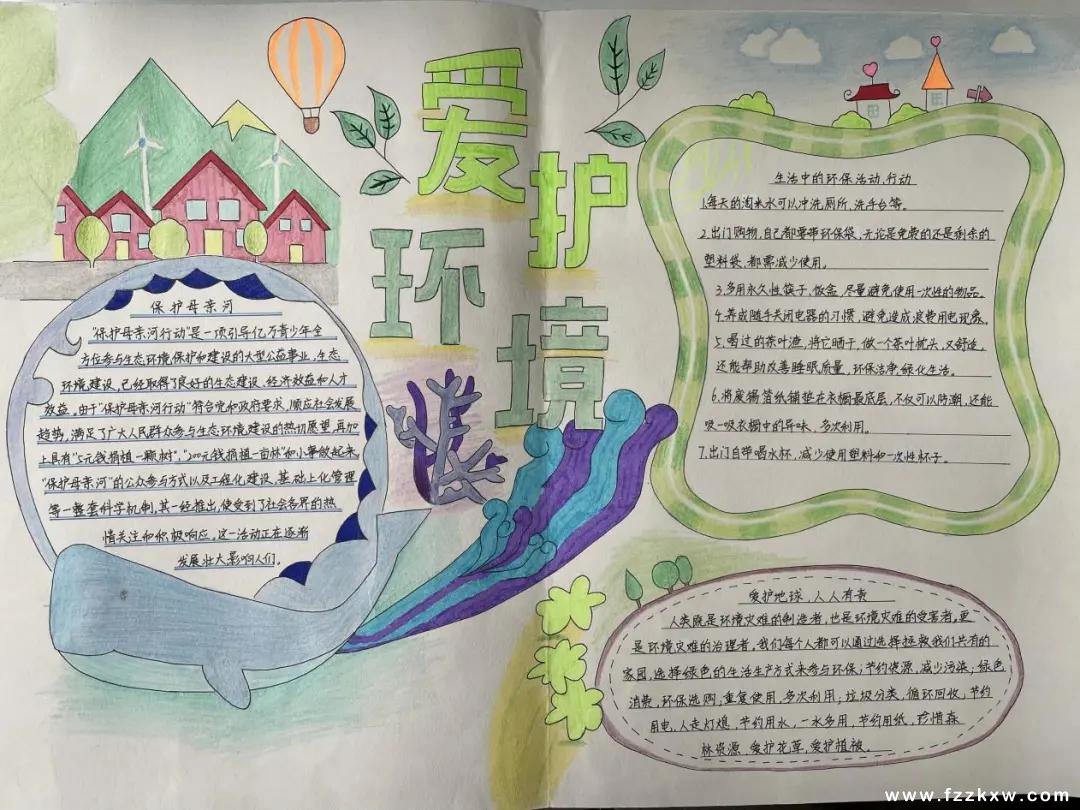 爱护
环境
保护母亲河
"保护母亲河行动"是一项引导亿万青少年全
方位参与生态环境保护和建设的大型公益事业，生态
环境建设，已经取得了良好的生态建设、经济效益和人才
效益。由于"保护母亲河行动"符合党和政府要求，顺应社会发展
趋势，满足了广大人民群众参与生态环境建设的热切愿望，再加
上具有"5元钱捐植一颗树"，"200元钱捐植一亩林"和小事做起来，
"保护母亲河"的公众参与方式以及工程化建设、基础上化管理
等一整套科学机制，其一经推出，使受到了社会各界的热
情关注和积极响应。这一活动正在逐渐
发展壮大影响人们。
生活中的环保活动、行动
1.每天的淘米水可以冲洗厕所、洗手台等。
2.出门购物，自己都要带环保袋，无论是免费的还是剩余的
塑料袋，都需减少使用。
3.多用永久性筷子、饭盒，尽量避免使用一次性的物品。
4.养成随手关闭电器的习惯，避免造成浪费用电现象。
5.喝过的茶叶渣，将它晒干，做一个茶叶枕头，又舒适，
还能帮助改善睡眠质量，环保洁净，绿化生活。
6.将废锡箔纸铺垫在衣橱最底层，不仅可以防潮，还能
吸一吸衣橱中的异味、多次利用。
7.出门自带喝水杯，减少使用塑料和一次性杯子。
爱护地球，人人有责
人类既是环境灾难的制造者，也是环境灾难的受害者，更
是环境灾难的治理者。我们每个人都可以通过选择拯救我们共有的
家园，选择绿色的生活生产方式来参与环保；节约资源，减少污染；绿色
消费，环保选购，重复使用，多次利用；垃圾分类，循环回收，节约
用电，人走灯熄，节约用水，一水多用，节约用纸，珍惜森
林资源，爱护花草，爱护植被。
www.fzzkxw.com